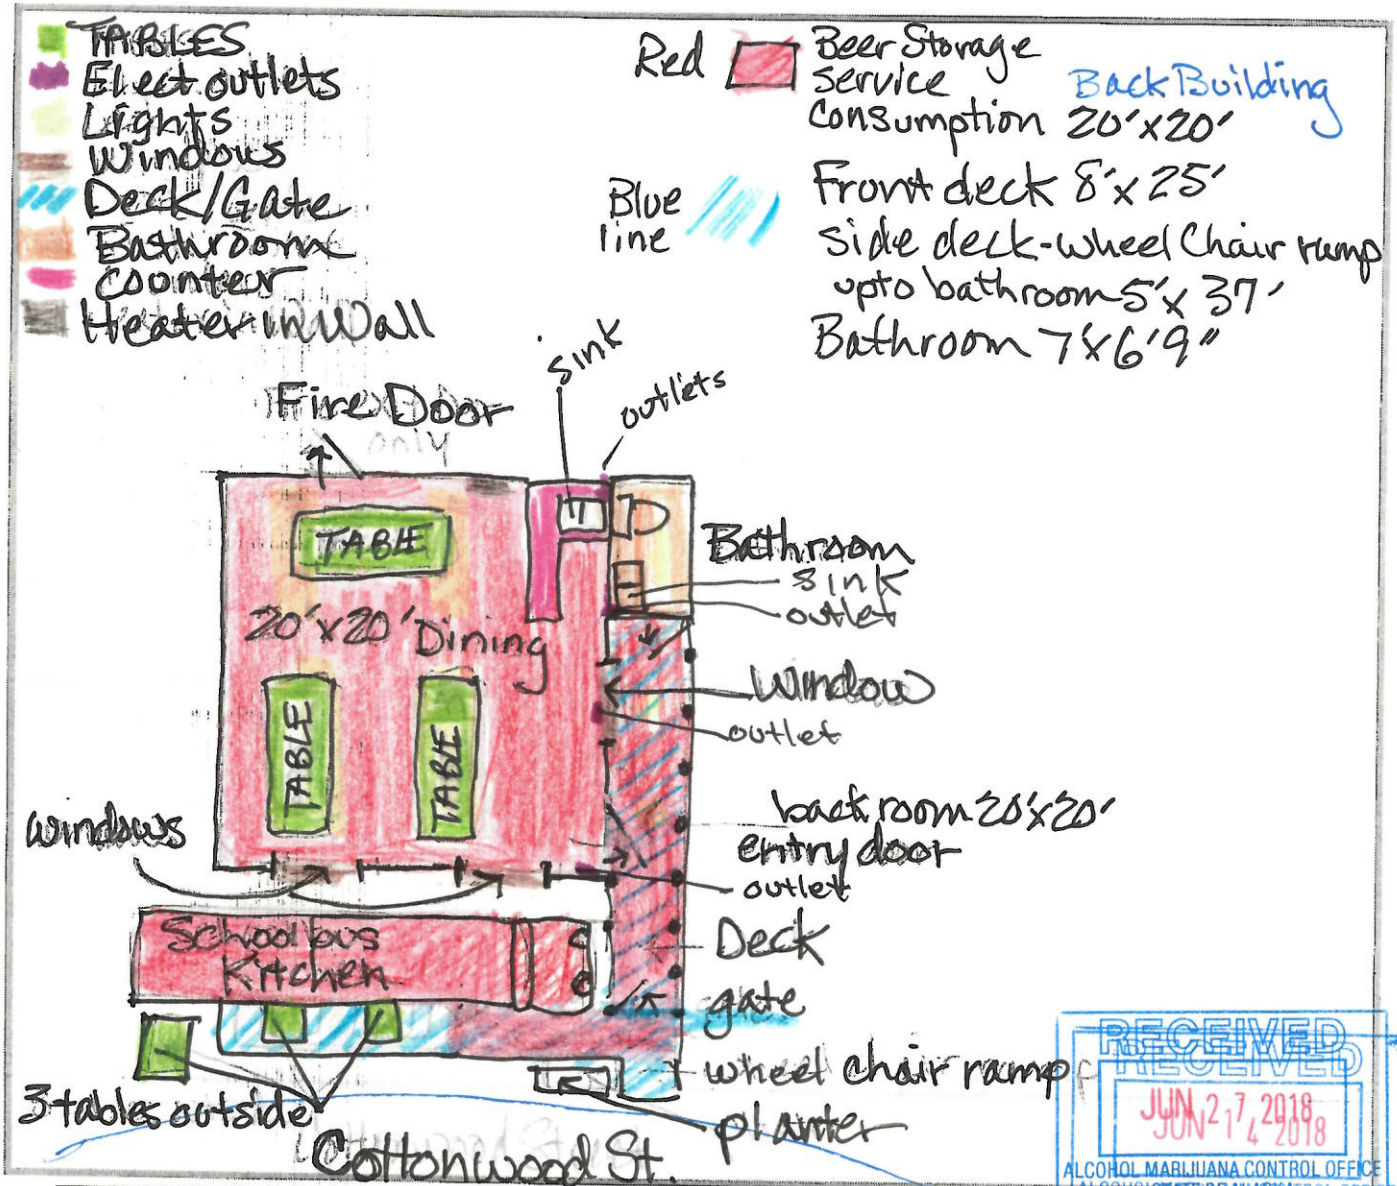 TABLES
Elect outlets
Lights
Windows
Deck/Gate
Bathroom
Counter
Heater in Wall
Red
Beer Storage
Service
Consumption 20'x20'
Back Building
Blue
line
Front deck 8'x25'
side deck-wheel Chair ramp
upto bathroom 5'x37'
Bathroom 7'x6'9"
sink
outlets
Fire Door
only
TABLE
20'x20' Dining
TABLE
TABLE
Bathroom
sink
outlet
Window
outlet
windows
back room 20'x20'
entry door
outlet
School bus
Kitchen
Deck
gate
wheel chair ramp
planter
3 tables outside
Cottonwood St.
RECEIVED
RECEIVED
JUN 27 2018
JUN 14 2018
ALCOHOL MARIJUANA CONTROL OFFICE